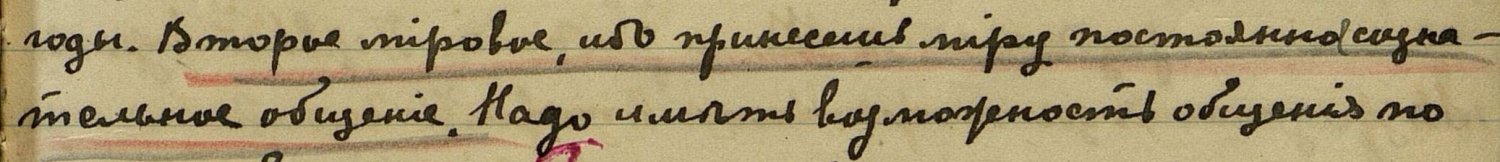 годы. Второе мiровое, ибо принесешь мiру постоянно созна-
тельное общенiе. Надо имѣть возможность общенiя по